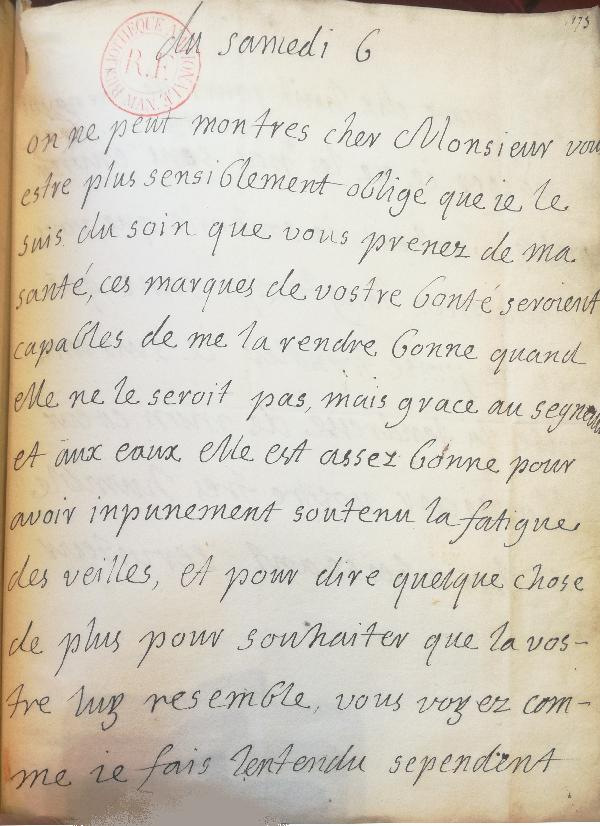 173
du samedi 6
BIBLIOTHEQUE NATIONALE MAN. R.F.
on ne peut montres cher Monsieur vous
estre plus sensiblement obligé que ie le
suis du soin que vous prenez de ma
santé, ces marques de vostre bonté seroient
capables de me la rendre bonne quand
elle ne le seroit pas, mais grace au segneur
et aux eaux elle est assez bonne pour
avoir inpunement soutenu la fatigue
des veilles, et pour dire quelque chose
de plus pour souhaiter que la vos-
tre luy resemble, vous voyez com-
me ie fais lentendu sependent